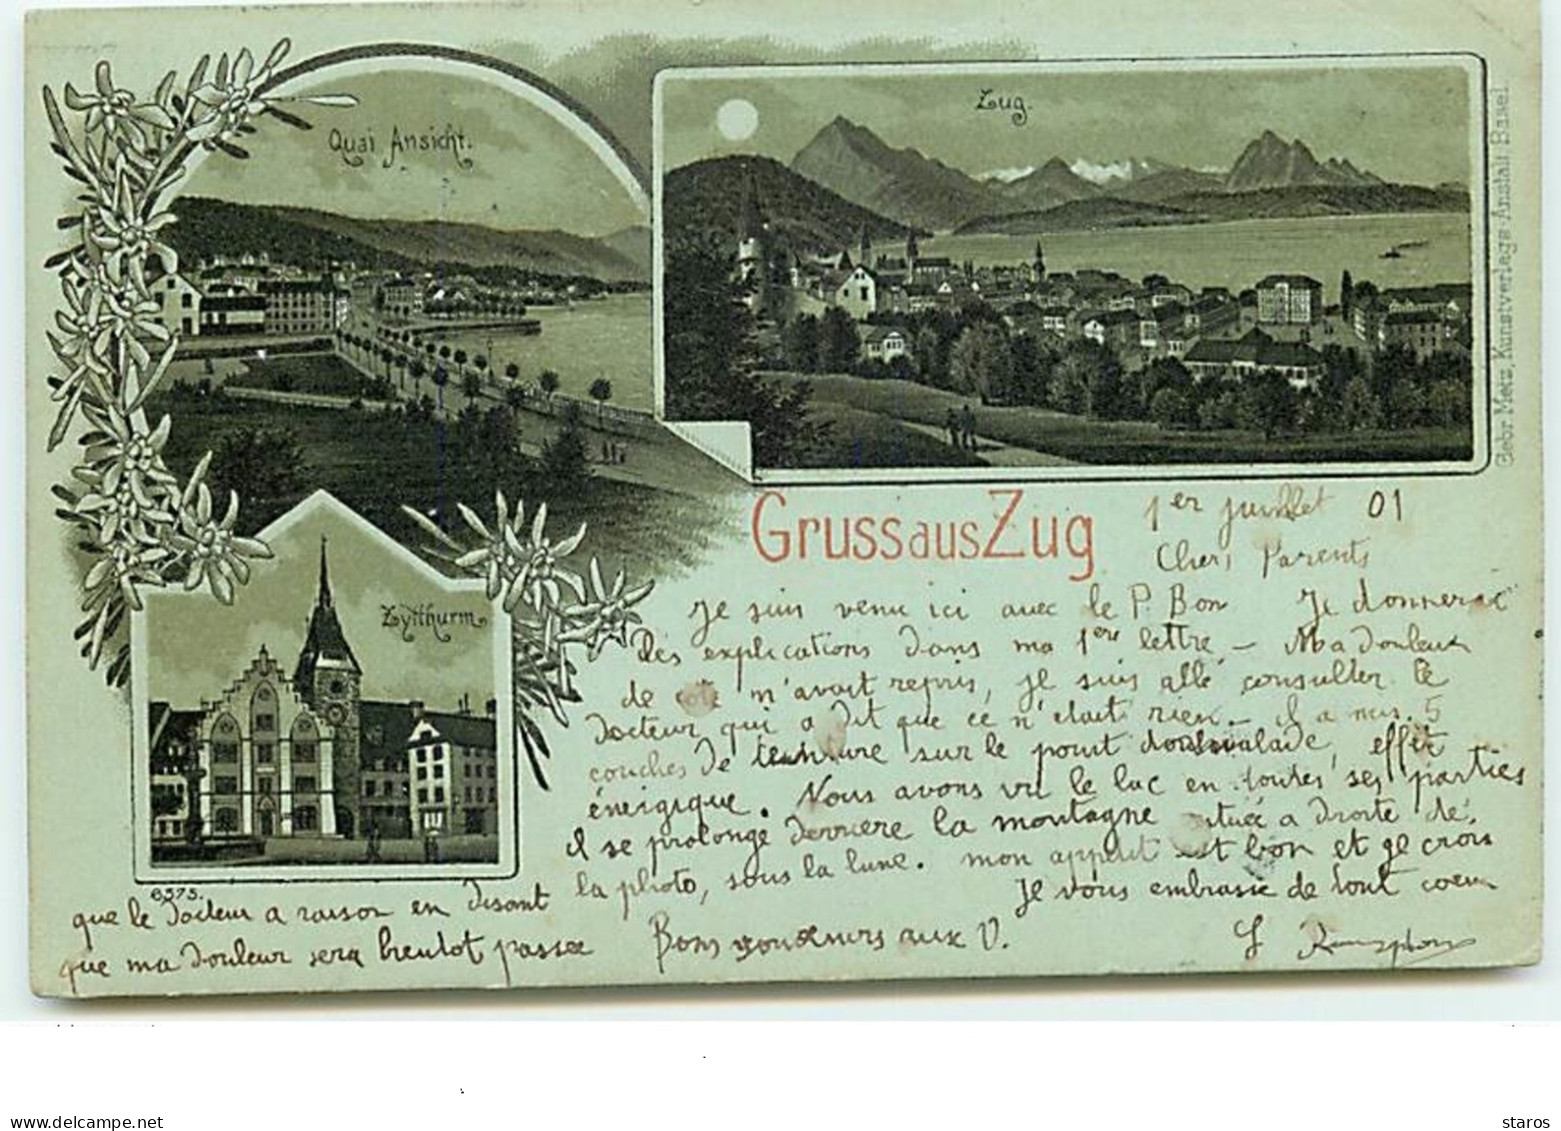 Quai Ansicht.
Zug.
Gebr. Metz, Kunstverlags-Anstalt Basel
Zytthurm
6575.
Gruss aus Zug
1er juillet 01
Chers Parents
Je suis venu ici avec le P. Bon Je donnerai
des explications dans ma 1ere lettre – Ma douleur
de côté m'avait repris, je suis allé consulter le
docteur qui a dit que ce n'etait rien – il a mis 5
couches de teinture sur le point douloureux, effet
énergique. Nous avons vu le lac en toutes ses parties
il se prolonge derrière la montagne située a droite de
la photo, sous la lune. mon appetit est bon et je crois
que le docteur a raison en disant
que ma douleur sera bientot passée
Je vous embrasse de tout coeur
Bons aux V.